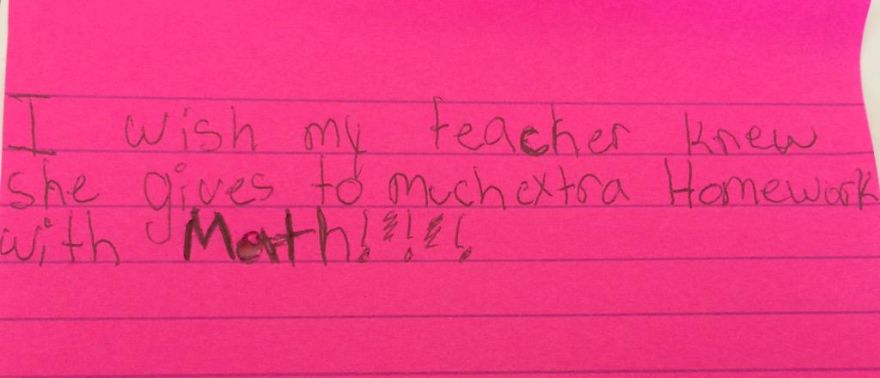 I wish my teacher knew
she gives to much extra Homework
with Math!!!!!